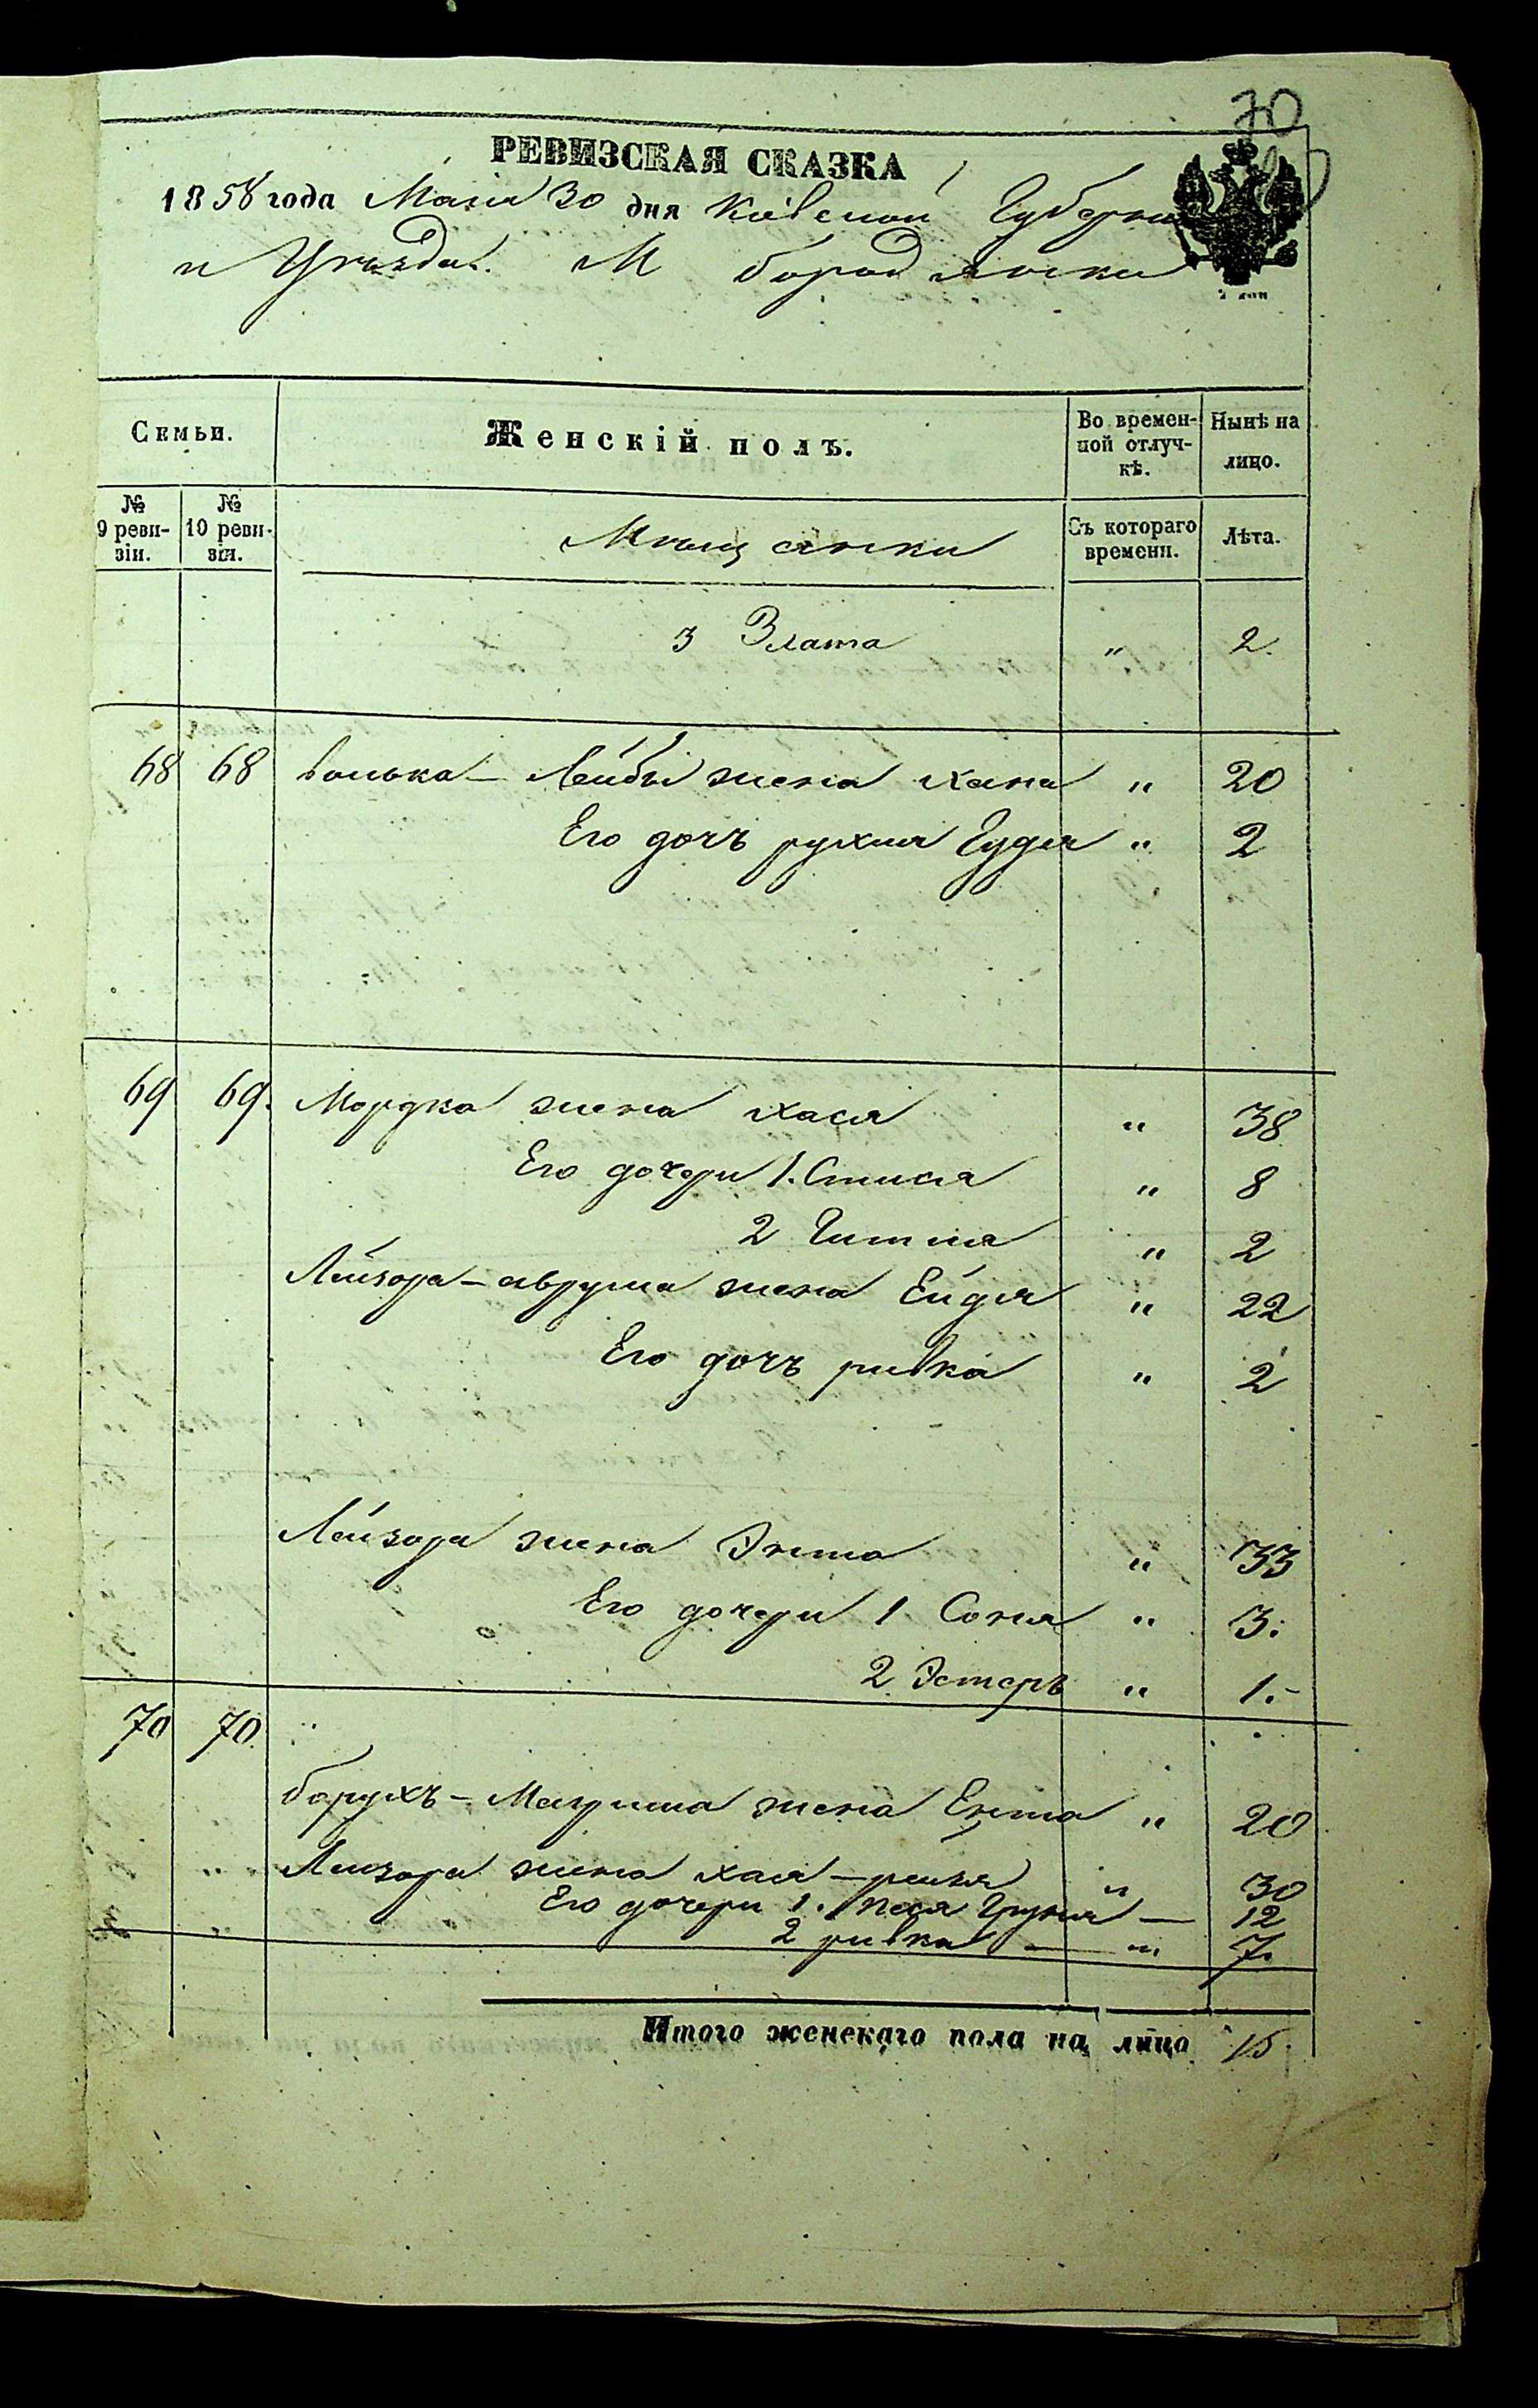 70
РЕВИЗСКАЯ СКАЗКА
1858 года Маія 30 дня Кіевской Губерніи
и Уѣзда. М Бородянки
Семьи.
Женскій полъ.
Во времен-
ной отлуч-
кѣ.
Нынѣ на
лицо.
№
9 реви-
зіи.
№
10 реви-
зіи.
Мѣщанки
Съ котораго
времени.
Лѣта.
3 Злата " 2.
68 68 Волька - Лейбы жена Хана " 20
Его дочь рухля Гудля " 2
69 69. Мордка жена Хася " 38
Его дочери 1. " 8
2 Гитля " 2
Лейзора - аврума жена Ейдля " 22
Его дочь ривка " 2
Лейзора жена Энта " 33
Его дочери 1. Соня " 3.
2 Эстеръ " 1.-
70 70.
барухъ - жена Ента " 20
" Лейзора жена хая - рейзя " 30
Его дочери 1. Песя Груня — 12
2 ривка — " 7.
Итого женскаго пола на лицо 15.